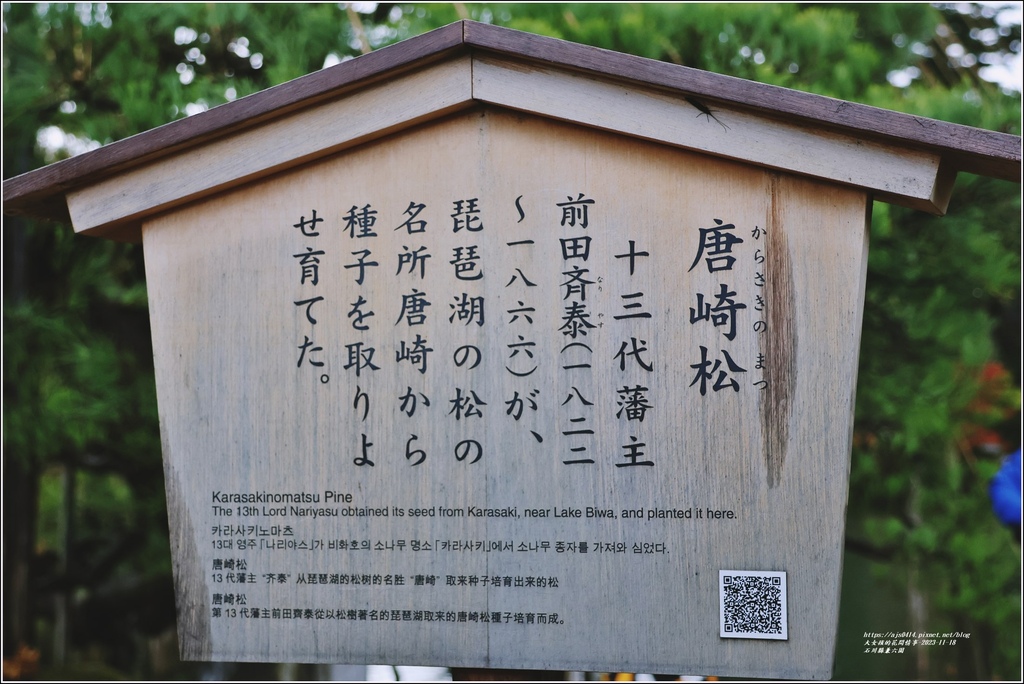 唐崎松
からさきの まつ
十三代藩主
前田斉泰(一八二二
なり やす
〜一八六六)が、
琵琶湖の松の
名所唐崎から
種子を取りよ
せ育てた。
Karasakinomatsu Pine
The 13th Lord Nariyasu obtained its seed from Karasaki, near Lake Biwa, and planted it here.
카라사키노마츠
13대 영주「나리야스」가 비화호의 소나무 명소「카라사키」에서 소나무 종자를 가져와 심었다.
唐崎松
13 代藩主 “齐泰” 从琵琶湖的松树的名胜 “唐崎” 取来种子培育出来的松
唐崎松
第 13 代藩主前田齊泰從以松樹著名的琵琶湖取來的唐崎松種子培育而成。
https://ajs0414.pixnet.net/blog
大女孩的花間情事 2023-11-18
石川縣兼六園